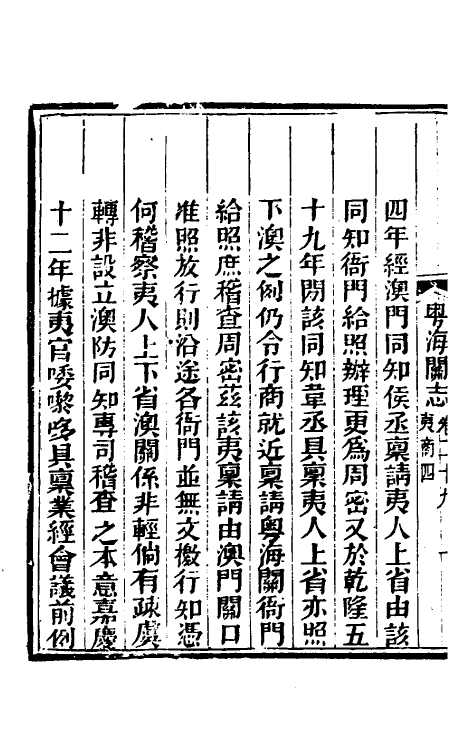 粵海關志 卷二十九 夷商四 一
四年經澳門同知侯丞稟請夷人上省由該
同知衙門給照辦理更爲周密又於乾隆五
十九年閒該同知韋丞具稟夷人上省亦照
下澳之例仍令行商就近稟請粵海關衙門
給照庶稽查周密玆該夷稟請由澳門關口
准照放行則沿途各衙門並無文檄行知憑
何稽察夷人上下省澳關係非輕倘有疎虞
轉非設立澳防同知專司稽查之本意嘉慶
十二年據夷官喽嚟哆具稟業經會議前例